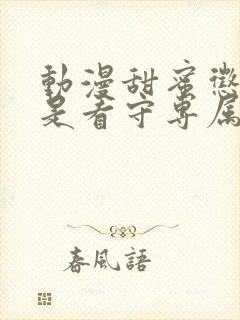 動漫甜蜜懲
是看守專屬
春風語